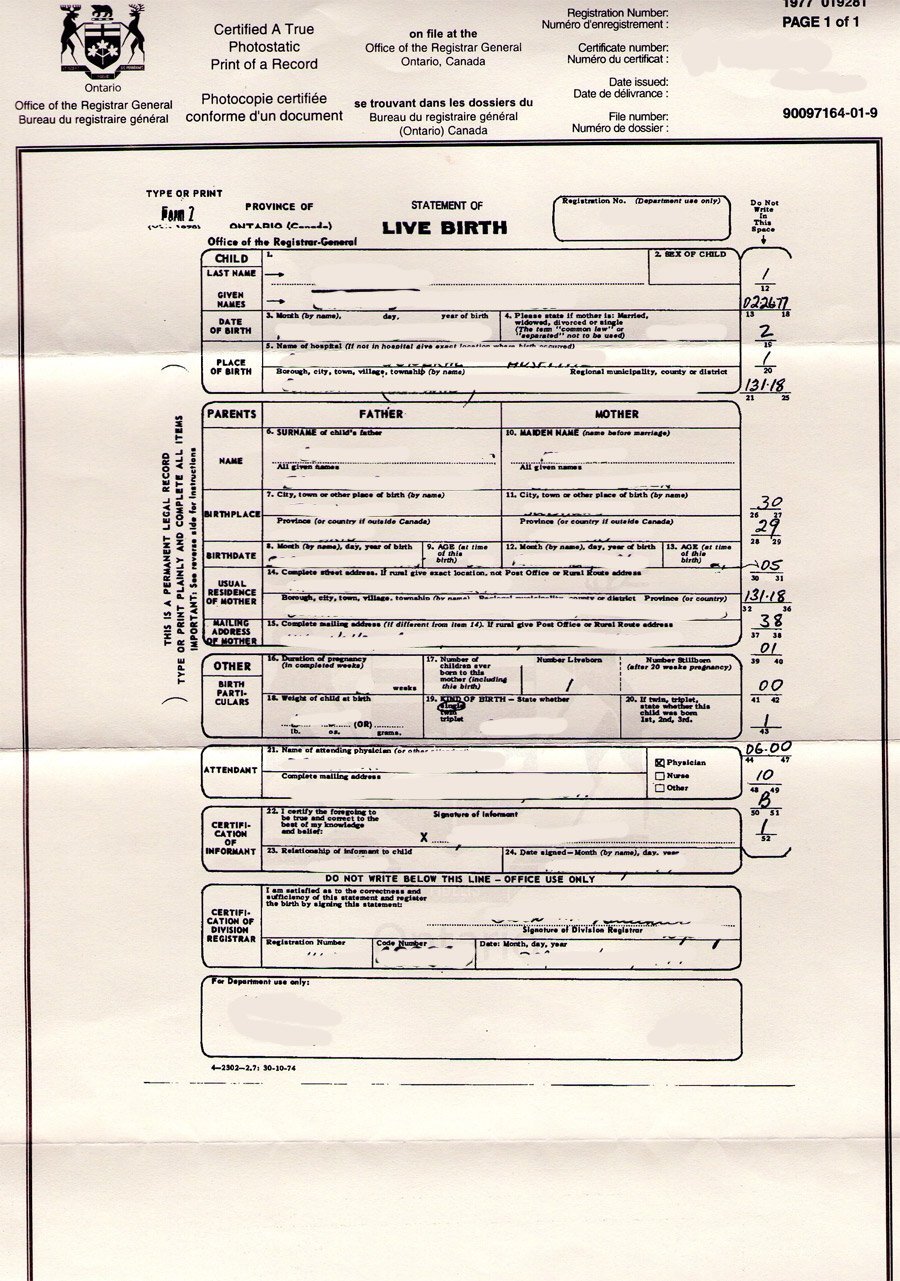 1977 019281
Registration Number:
Numéro d'enregistrement :
PAGE 1 of 1
Certified A True
Photostatic
Print of a Record
on file at the
Office of the Registrar General
Ontario, Canada
Certificate number:
Numéro du certificat :
Date issued:
Date de délivrance :
Ontario
Office of the Registrar General
Bureau du registraire général
Photocopie certifiée
conforme d'un document
se trouvant dans les dossiers du
Bureau du registraire général
(Ontario) Canada
File number:
Numéro de dossier :
90097164-01-9
TYPE OR PRINT
PROVINCE OF
ONTARIO (Canada)
Office of the Registrar-General
STATEMENT OF
LIVE BIRTH
Registration No. (Department use only)
Do Not
Write
In
This
Space
CHILD
1.
2. SEX OF CHILD
LAST NAME
GIVEN
NAMES
1
12
022677
13 18
DATE
OF BIRTH
3. Month (by name), day, year of birth
4. Please state if mother is: Married,
widowed, divorced or single
(The term "common law" or
"separated" not to be used)
2
19
PLACE
OF BIRTH
5. Name of hospital (If not in hospital give exact location where birth occurred)
Borough, city, town, village, township (by name) Regional municipality, county or district
1
20
131.18
21 25
THIS IS A PERMANENT LEGAL RECORD
TYPE OR PRINT PLAINLY AND COMPLETE ALL ITEMS
IMPORTANT: See reverse side for Instructions
PARENTS
FATHER
MOTHER
NAME
6. SURNAME of child's father
10. MAIDEN NAME (name before marriage)
All given names
All given names
BIRTHPLACE
7. City, town or other place of birth (by name)
11. City, town or other place of birth (by name)
Province (or country if outside Canada)
Province (or country if outside Canada)
30
26 27
29
28 29
BIRTHDATE
8. Month (by name), day, year of birth
9. AGE (at time
of this
birth)
12. Month (by name), day, year of birth
13. AGE (at time
of this
birth)
05
30 31
USUAL
RESIDENCE
OF MOTHER
14. Complete street address. If rural give exact location, not Post Office or Rural Route address
Borough, city, town, village, township (by name) Regional municipality, county or district Province (or country)
131.18
32 36
MAILING
ADDRESS
OF MOTHER
15. Complete mailing address (if different from item 14). If rural give Post Office or Rural Route address
38
37 38
OTHER
BIRTH
PARTI-
CULARS
16. Duration of pregnancy
(in completed weeks)
weeks
17. Number of
children ever
born to this
mother (including
this birth)
Number Liveborn
1
Number Stillborn
(after 20 weeks pregnancy)
01
39 40
00
41 42
18. Weight of child at birth
(OR)
lb. oz. grams.
19. KIND OF BIRTH – State whether
single
twin
triplet
20. If twin, triplet,
state whether this
child was born
1st, 2nd, 3rd.
1
43
ATTENDANT
21. Name of attending physician
Complete mailing address
Physician
Nurse
Other
06.00
44 47
10
48 49
B
50 51
CERTIFI-
CATION
OF
INFORMANT
22. I certify the foregoing to
be true and correct to the
best of my knowledge
and belief:
Signature of Informant
X
23. Relationship of informant to child
24. Date signed—Month (by name), day, year
1
52
DO NOT WRITE BELOW THIS LINE – OFFICE USE ONLY
CERTIFI-
CATION OF
DIVISION
REGISTRAR
I am satisfied as to the correctness and
sufficiency of this statement and register
the birth by signing this statement:
Signature of Division Registrar
Registration Number
Code Number
Date: Month, day, year
For Department use only:
4—2302—2.7: 30-10-74